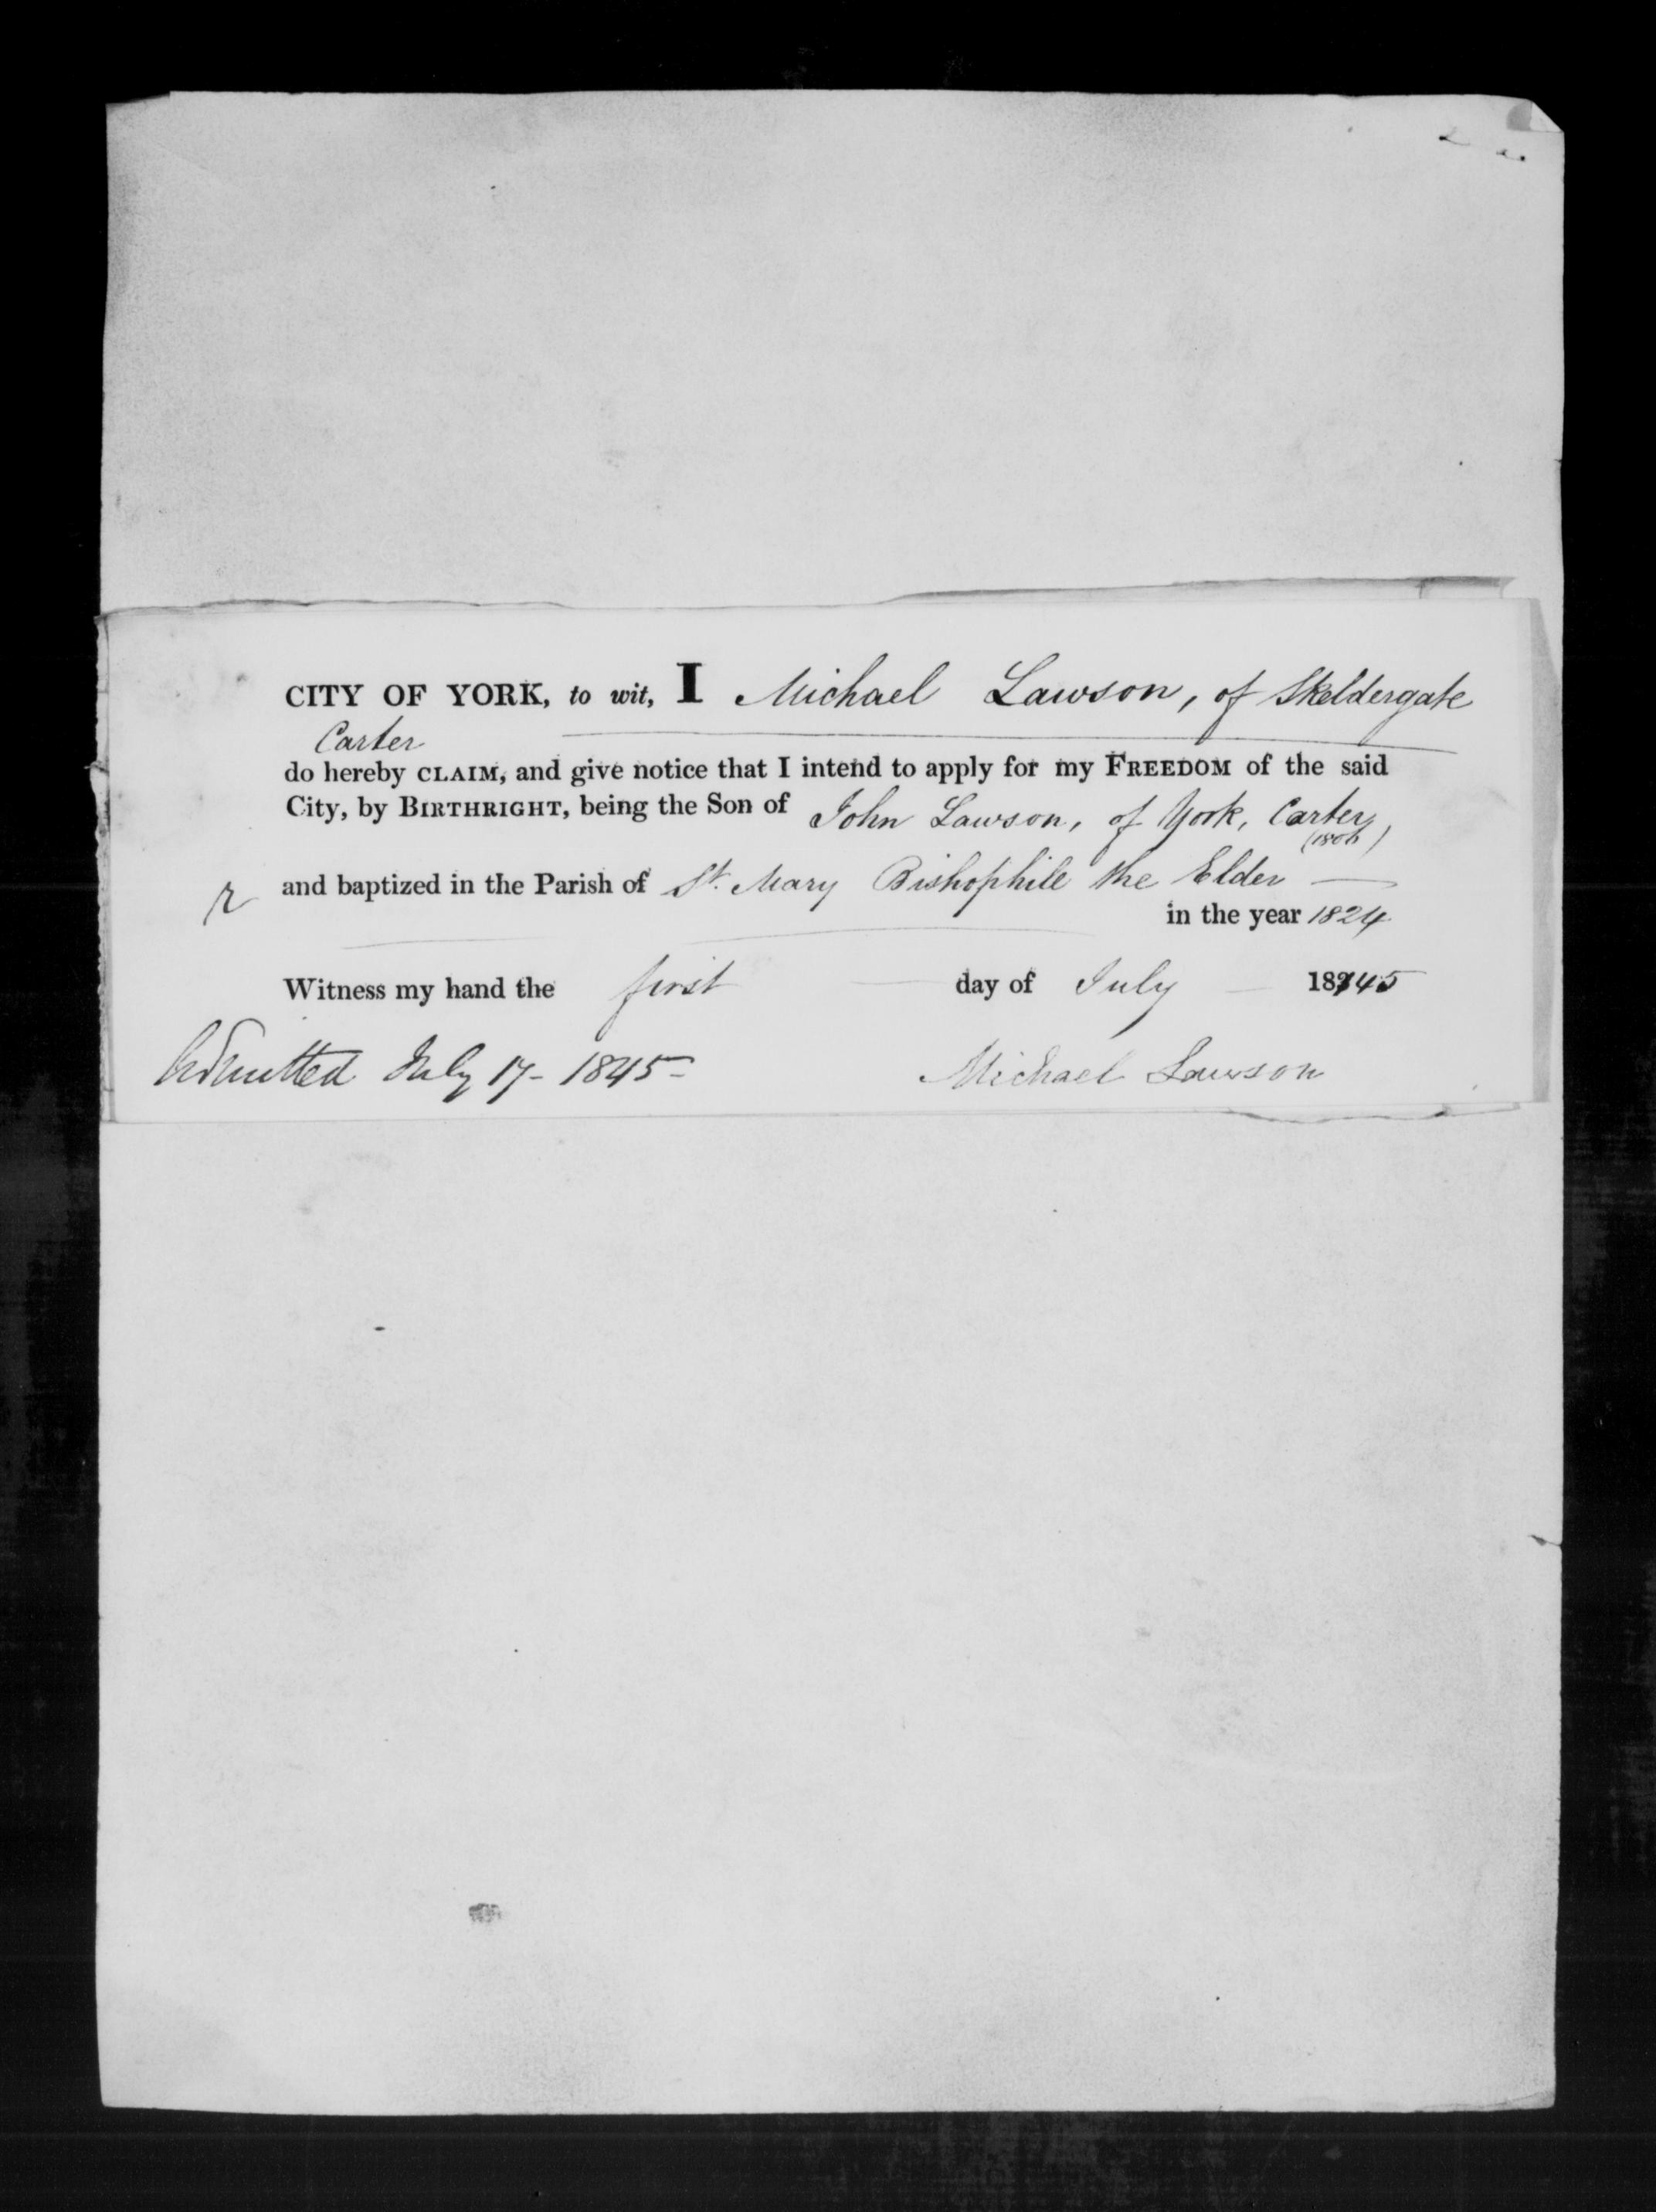 CITY OF YORK, to wit, I Michael Lawson, of Skeldergate
Carter
do hereby CLAIM, and give notice that I intend to apply for my FREEDOM of the said
City, by BIRTHRIGHT, being the Son of John Lawson, of York, Carter,
(1806)
and baptized in the Parish of St. Mary Bishophill the Elder —
in the year 1824
Witness my hand the first day of July — 1845
Admitted July 17 - 1845 -
Michael Lawson